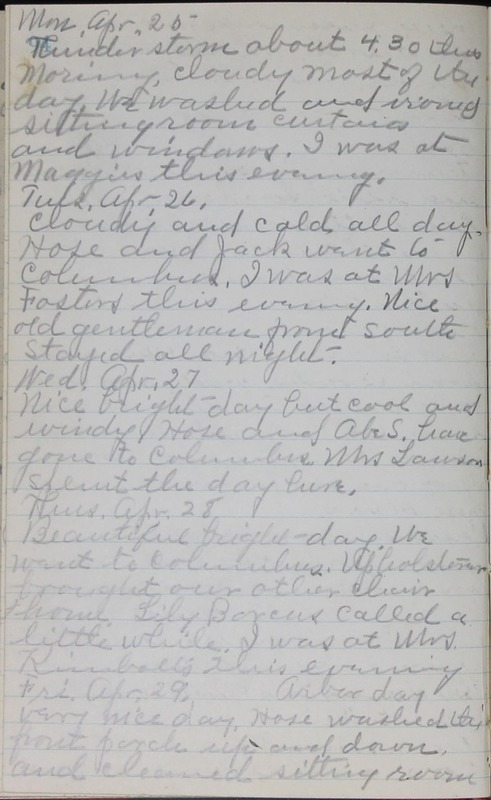 Mon. Apr. 25
Thunder storm about 4.30 this
Morning, cloudy most of the
day. We washed and ironed
sitting room curtains
and windows. I was at
Maggies this evening.
Tues. Apr. 26.
Cloudy and cold all day.
Hose and Jack went to
Columbus. I was at Mrs
Fosters this evening. Nice
old gentleman from South
Stayed all night.
Wed. Apr. 27
Nice bright day but cool and
windy. Hose and Abe S. have
gone to Columbus. Mrs Lawson
spent the day here.
Thurs. Apr. 28
Beautiful bright day. We
went to Columbus. Upholsterer
brought our other chair
home. Lily Barcus called a
little while. I was at Mrs.
Kimball's this evening
Fri. Apr. 29. Arbor day
very nice day. Hose washed the
front porch up and down.
and cleaned sitting room